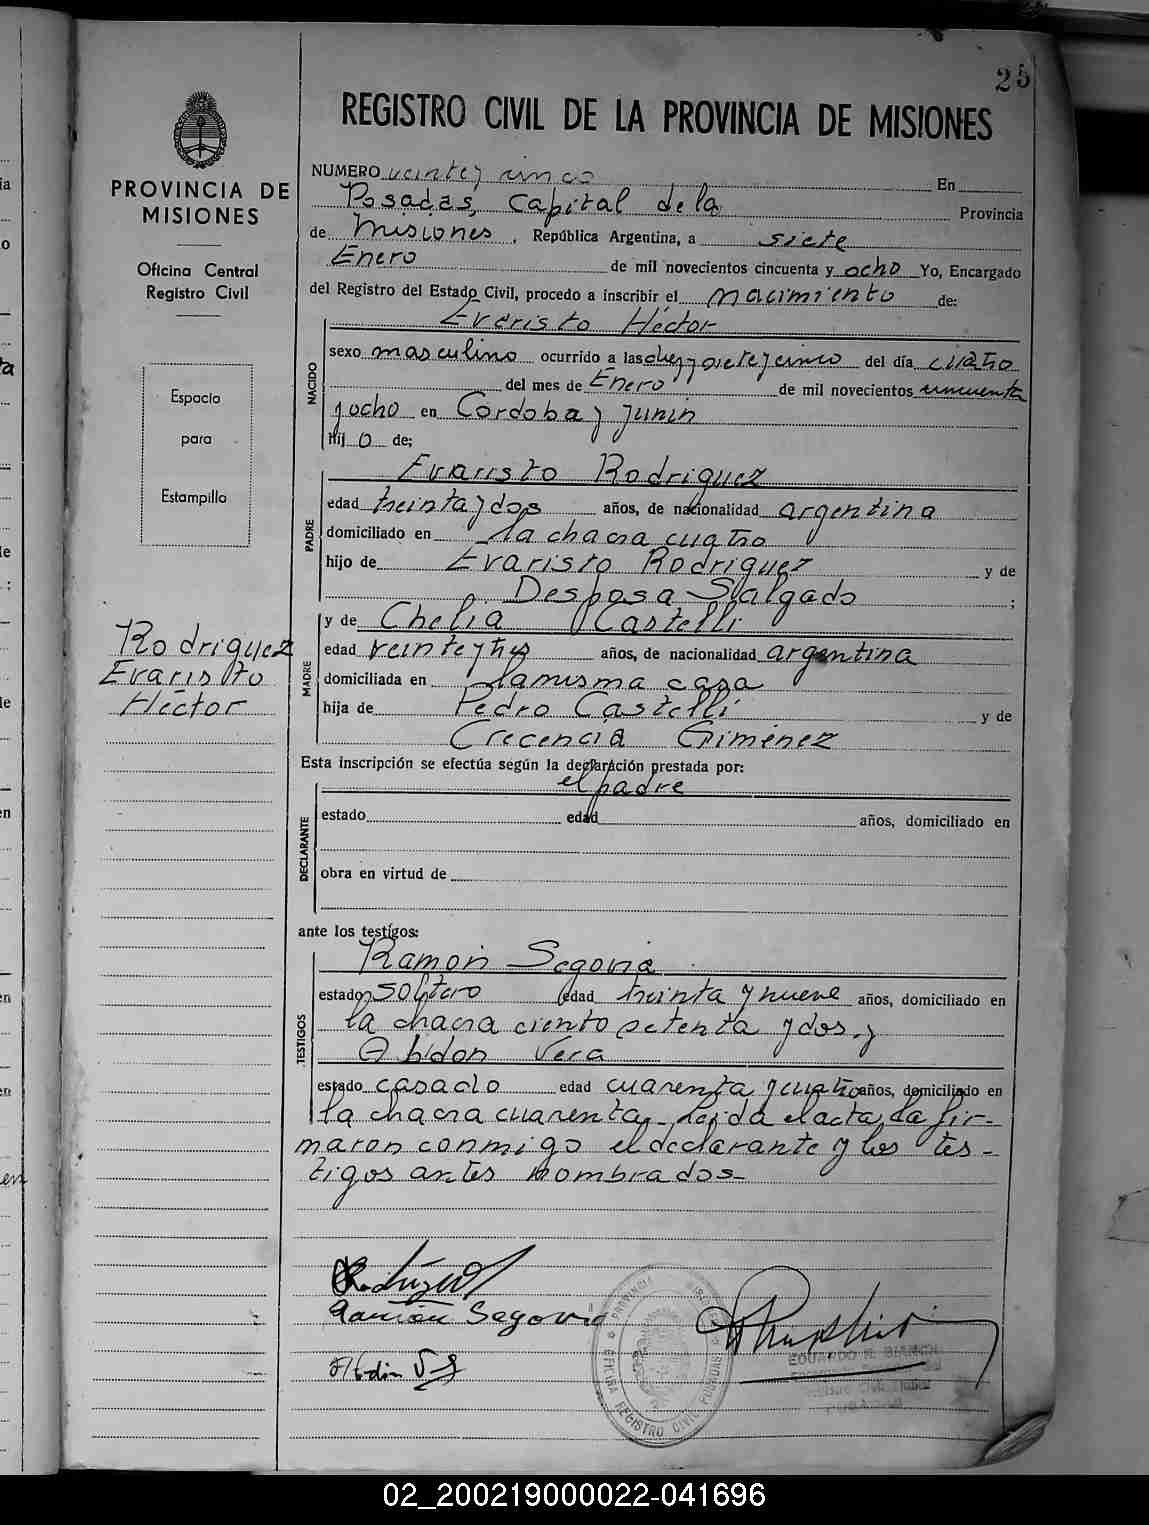 25
REGISTRO CIVIL DE LA PROVINCIA DE MISIONES
PROVINCIA DE
MISIONES
Oficina Central
Registro Civil
Espacio
para
Estampilla
Rodriguez
Evaristo
Héctor
NUMERO veinte y cinco En
Posadas, Capital de la Provincia
de Misiones, República Argentina, a siete
Enero de mil novecientos cincuenta y ocho Yo, Encargado
del Registro del Estado Civil, procedo a inscribir el nacimiento de:
Evaristo Héctor
NACIDO
sexo masculino ocurrido a las diez y siete y cinco del día cuatro
del mes de Enero de mil novecientos cincuenta
y ocho en Córdoba y Junin
hij o de;
PADRE
Evaristo Rodriguez
edad treinta y dos años, de nacionalidad argentina
domiciliado en la chacra cuatro
hijo de Evaristo Rodriguez y de
Desposa Salgado ;
MADRE
y de Chelia Castelli
edad veinte y tres años, de nacionalidad argentina
domiciliada en la misma casa
hija de Pedro Castelli y de
Crecencia Giménez
Esta inscripción se efectúa según la declaración prestada por:
el padre
DECLARANTE
estado edad años, domiciliado en
obra en virtud de
ante los testigos:
TESTIGOS
Ramón Segovia
estado soltero edad treinta y nueve años, domiciliado en
la chacra ciento setenta y dos y
Abdon Vera
estado casado edad cuarenta y cuatro años, domiciliado en
la chacra cuarenta. Leida el acta, la fir-
maron conmigo el declarante y los tes-
tigos antes nombrados-
Ramón Segovia
PROVINCIA MISIONES
OFICINA REGISTRO CIVIL POSADAS
EDUARDO R. BIANCHI
02_200219000022-041696